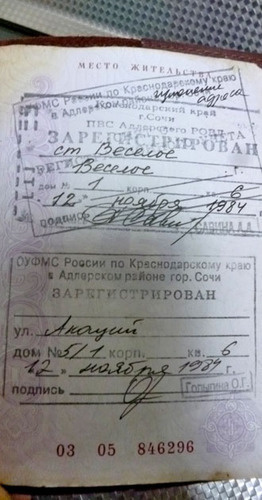 МЕСТО ЖИТЕЛЬСТВА
уточнение
адреса
ОУФМС России по Краснодарскому краю
в Адлерском районе
Краснодарский край
г.Сочи
ПВС Адлерского РОВД
ЗАРЕГИСТРИРОВАН
ст Веселое
Веселое
дом № 1 корп. 6
"12" ноября 1984
подпись САВИНА А.А.
ОУФМС России по Краснодарскому краю
в Адлерском районе гор. Сочи
ЗАРЕГИСТРИРОВАН
ул. Акаций
дом № 5/1 корп. кв. 6
"12" ноября 1984 г.
подпись Голыпина О.Г.
03 05 846296